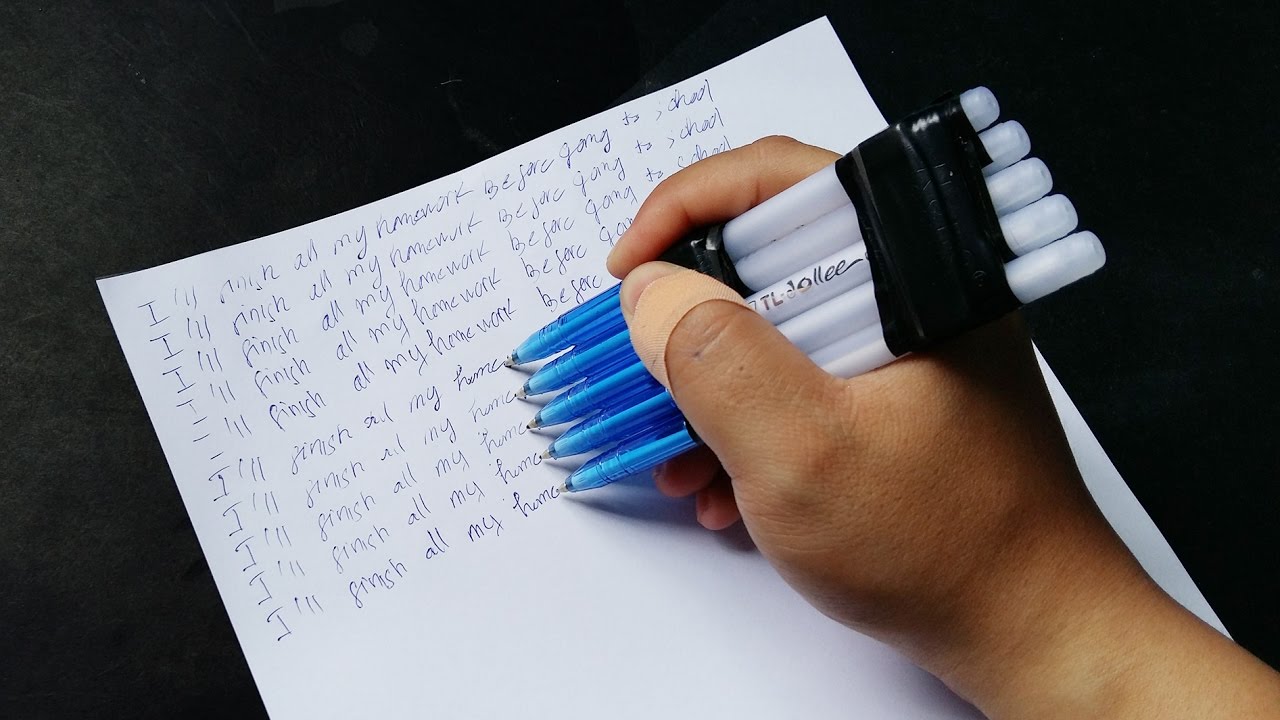 I'll finish all my homework Before going to school
I'll finish all my homework Before going to school
I'll finish all my homework Before going to school
I'll finish all my homework Before going
I'll finish all my homework Before
I'll finish all my home
I'll finish all my home
I'll finish all my home
I'll finish all my home
I'll finish all my home
TL-dollee